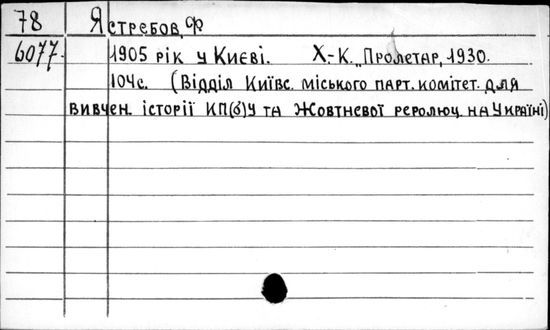 78 Ястребов, Ф
6077. 1905 рік у Києві. Х.-К. „Пролетар, 1930.
104с. (Відділ Київс. міського парт. комітет. для
вивчен. історії КП(б)У та Жовтневої реролюц. на Україні)